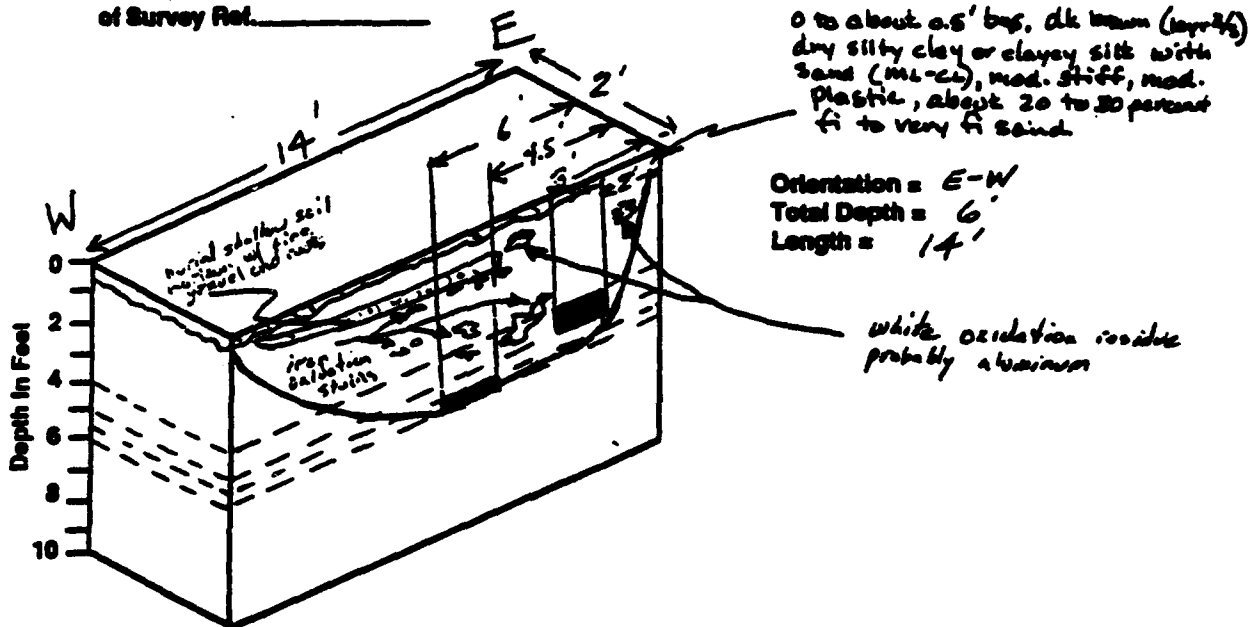 of Survey Ref.
E
2'
14'
6'
4.5'
3'
2'
W
0 to about 0.5' bgs, dk brown (10yr 2/3)
dry silty clay or clayey silt with
sand (ML-CL), mod. stiff, mod.
plastic, about 20 to 30 percent
fi to very fi sand
Orientation = E-W
Total Depth = 6'
Length = 14'
shallow soil
gravel and
iron
oxidation
stains
white oxidation residue
probably aluminum
Depth in Feet
0
2
4
6
8
10